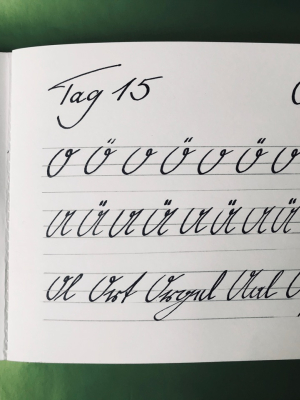 Tag 15
O Ö O Ö O Ö O
A Ä A Ä A Ä A Ä
Ort Orgel Aal